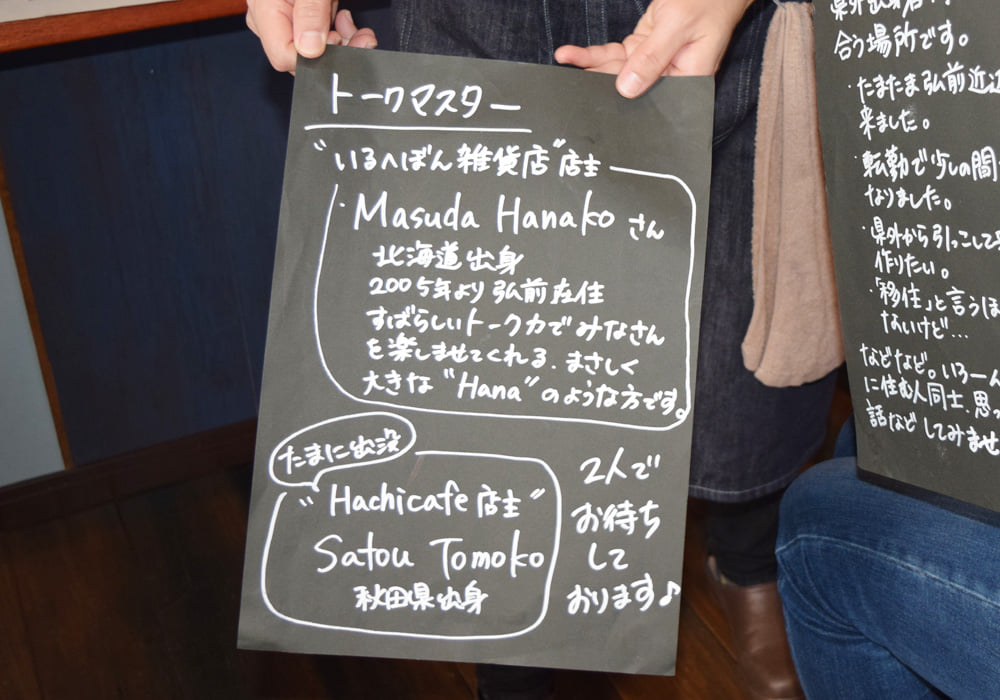 トークマスター
"いるへぼん雑貨店"店主
・Masuda Hanako さん
北海道出身
2005年より弘前在住
すばらしいトーク力でみなさん
を楽しませてくれる、まさしく
大きな"Hana"のような方です。
たまに出没
"Hachicafe 店主"
Satou Tomoko
秋田県出身
2人で
お待ち
して
おります♪
県外出身
合う場所です。
・たまたま弘前近辺
来ました。
・転勤で少しの間
なりました。
・県外から引っこして
作りたい。
・「移住」と言うほ
ないけど…
などなど。いろ
に住む人同士、思
話などしてみませ